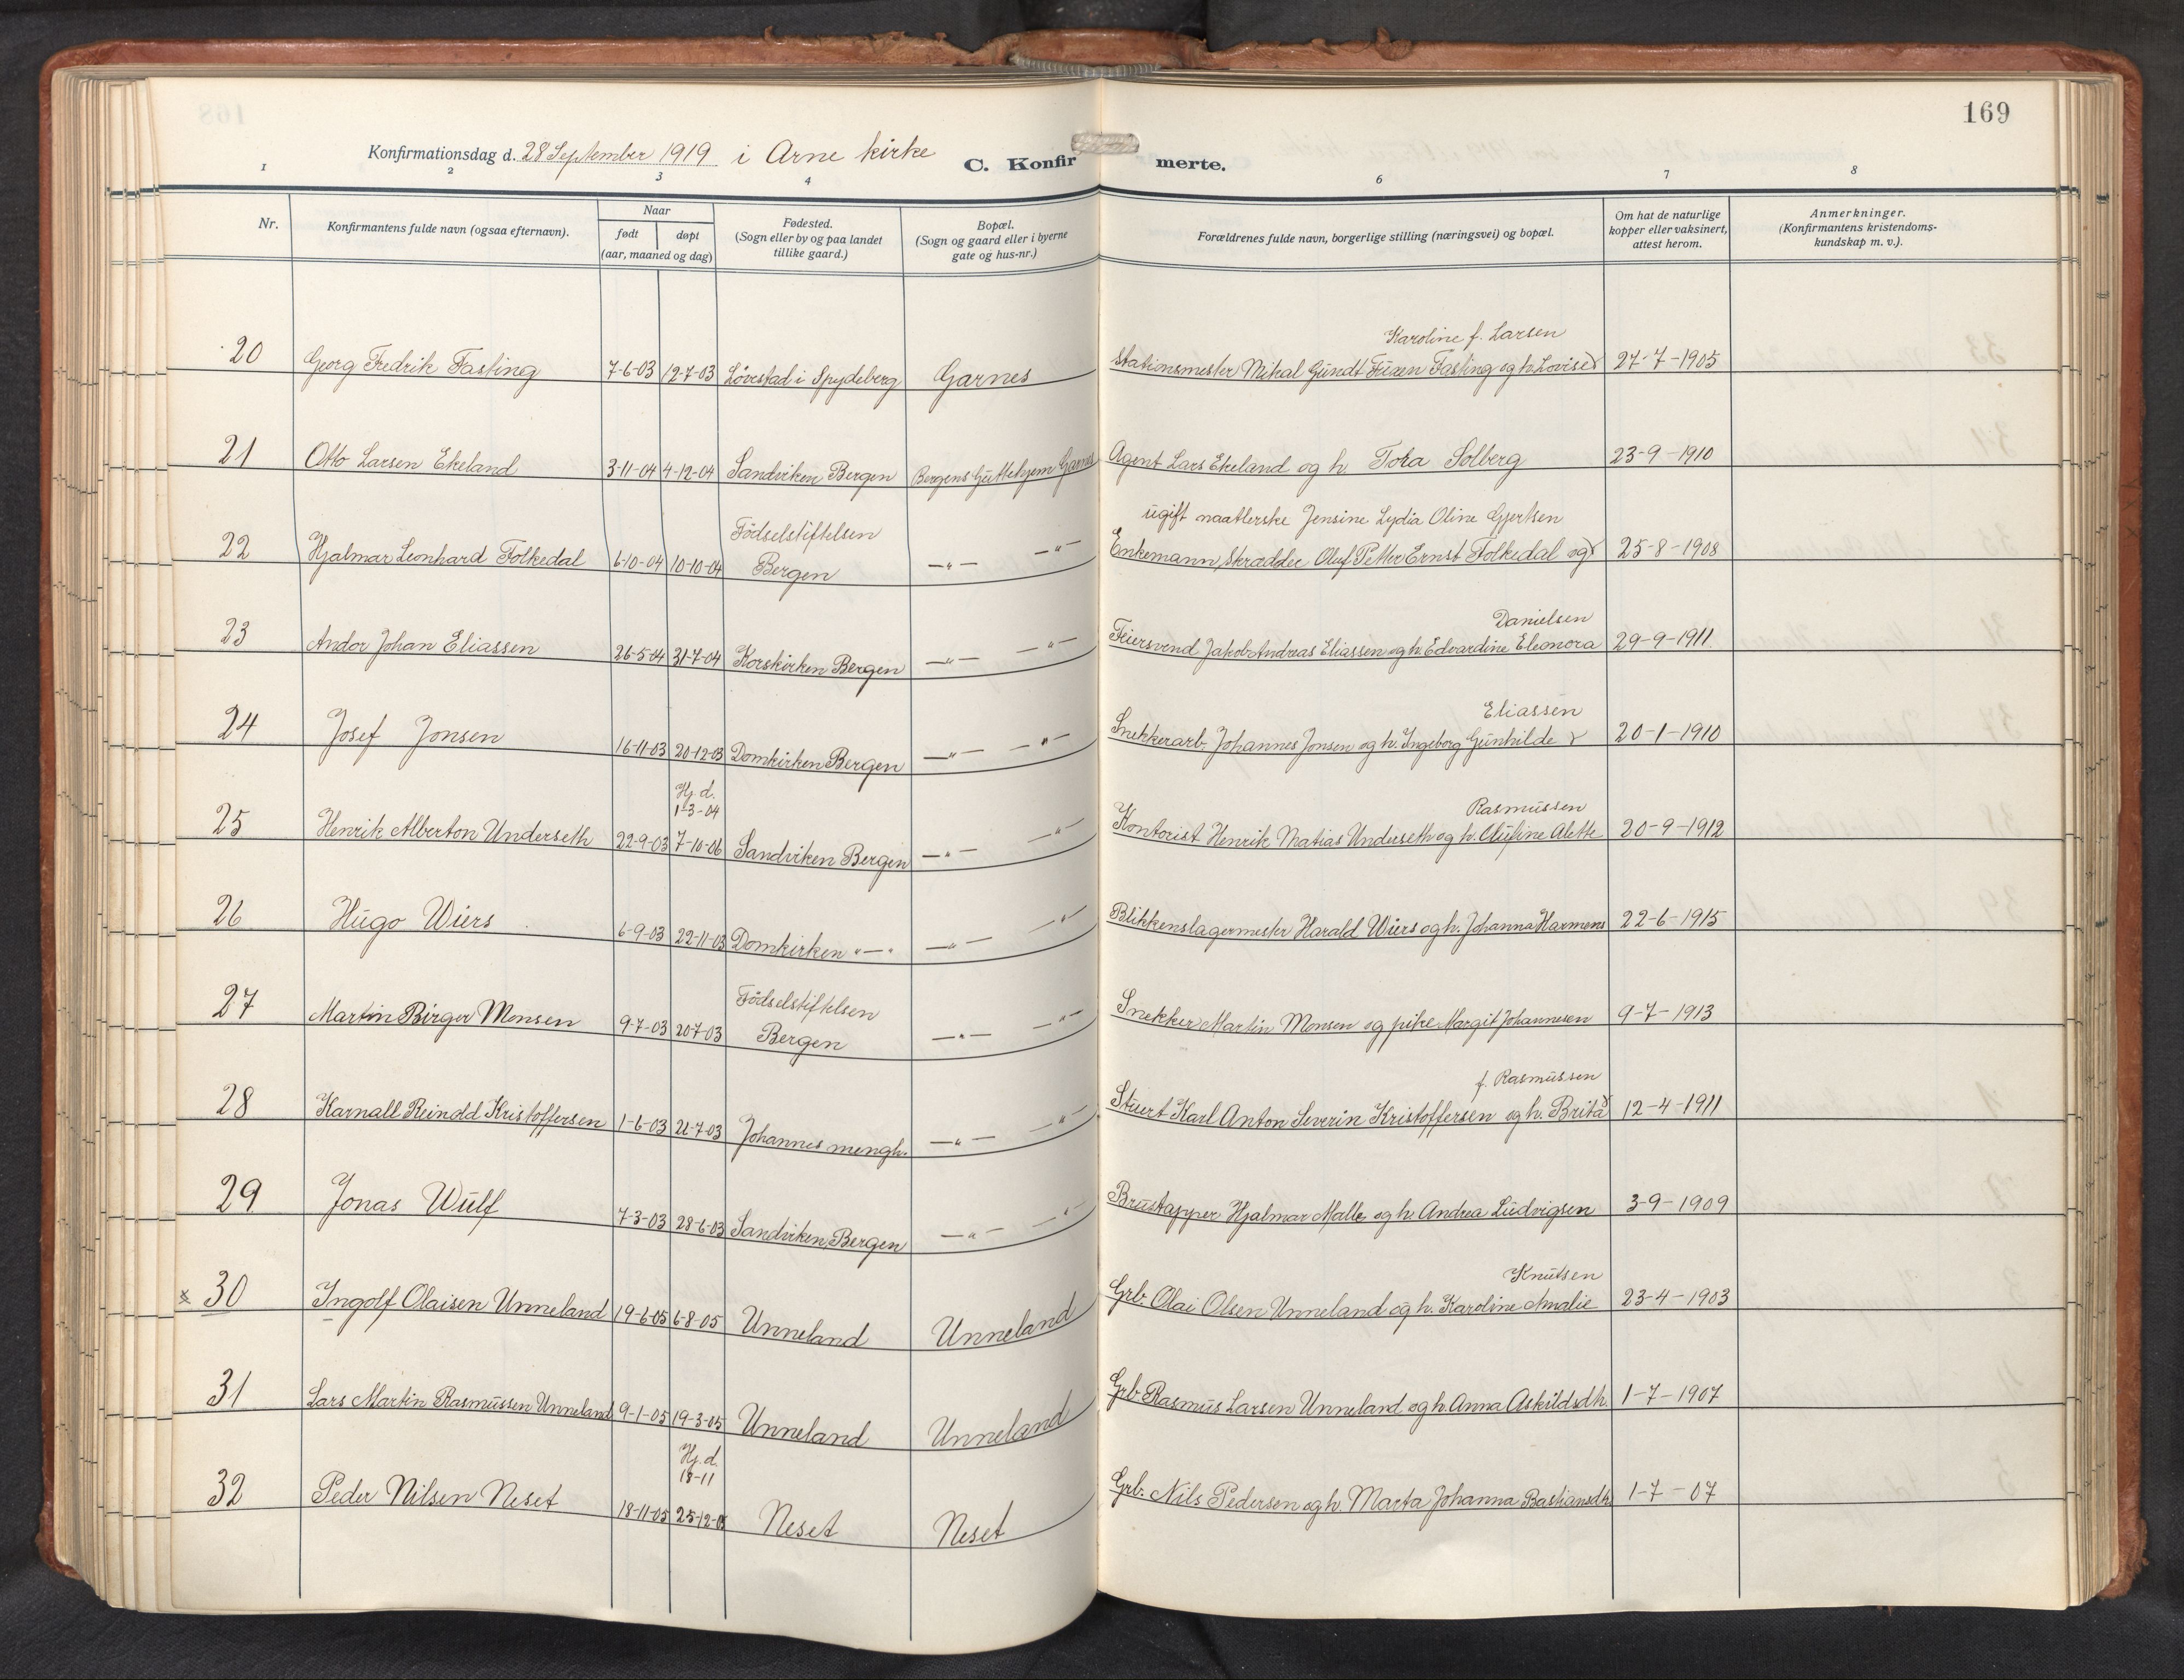 169
Konfirmationsdag d. 28 September 1919 i Arne kirke
C. Konfirmerte.
1 2 3 4 6 7 8
Nr.
Konfirmantens fulde navn (ogsaa efternavn).
Naar
født døpt
(aar, maaned og dag)
Fødested.
(Sogn eller by og paa landet
tillike gaard.)
Bopæl.
(Sogn og gaard eller i byerne
gate og hus-nr.)
Forældrenes fulde navn, borgerlige stilling (næringsvei) og bopæl.
Om hat de naturlige
kopper eller vaksinert,
attest herom.
Anmerkninger.
(Konfirmantens kristendoms-
kundskap m. v.).
Karoline f. Larsen
20 Georg Fredrik Fasting 7-6-03 12-7-03 Løvestad i Spydeberg Garnes Stationsmester Mikal Gundt Füxen Fasting og h. Lovise 27-7-1905
21 Otto Larsen Ekeland 3-11-04 4-12-04 Sandviken Bergen Bergens Guttehjem Garnes Agent Lars Ekeland og h. Tora Solberg 23-9-1910
Födselstiftelsen ugift naatlerske Jensine Lydia Oline Gjertsen
22 Hjalmar Leonhard Folkedal 6-10-04 10-10-04 Bergen —"— —"— Enkemann, Skrædder Oluf Petter Ernst Folkedal og 25-8-1908
Danielsen
23 Andor Johan Eliassen 26-5-04 31-7-04 Korskirken Bergen —"— —"— Feiersvend Jakob Andreas Eliassen og h. Edvardine Eleonora 29-9-1911.
Eliassen
24 Josef Jonsen 16-11-03 20-12-03 Domkirken Bergen —"— —"— Snekkerarb. Johannes Jonsen og h. Ingeborg Gunhilde 20-1-1910
Hj. d.
1-3-04 Rasmussen
25 Henrik Alberton Underseth 22-9-03 7-10-06 Sandviken Bergen —"— —"— Kontorist Henrik Matias Underseth og h. Olufine Alette 20-9-1912
26 Hugo Wiers 6-9-03 22-11-03 Domkirken "—" —"— —"— Blikkenslagermester Harald Wiers og h. Johanna Harmens 22-6-1915
Födselstiftelsen
27 Martin Birger Monsen 9-7-03 20-7-03 Bergen —"— —"— Snekker Martin Monsen og pike Margit Johannesen 9-7-1913
f. Rasmussen
28 Karnall Reinold Kristoffersen 1-6-03 21-7-03 Johannes mengh. —"— —"— Stuert Karl Anton Severin Kristoffersen og h. Brita 12-4-1911
29 Jonas Wulf 7-3-03 28-6-03 Sandviken, Bergen —"— —"— Brustapper Hjalmar Malle og h. Andrea Ludvigsen 3-9-1909
Knutsen
x 30 Ingolf Olaisen Unneland 19-6-05 6-8-05 Unneland Unneland Grb. Olai Olsen Unneland og h. Karoline Amalie 23-4-1903
31 Lars Martin Rasmussen Unneland 9-1-05 19-3-05 Unneland Unneland Grb. Rasmus Larsen Unneland og h. Anna Askildsdh. 1-7-1907
Hj. d.
18-11
32 Peder Nilsen Neset 18-11-05 25-12-05 Neset Neset Grb. Nils Pedersen og h. Marta Johanna Bastiansdh. 1-7-07